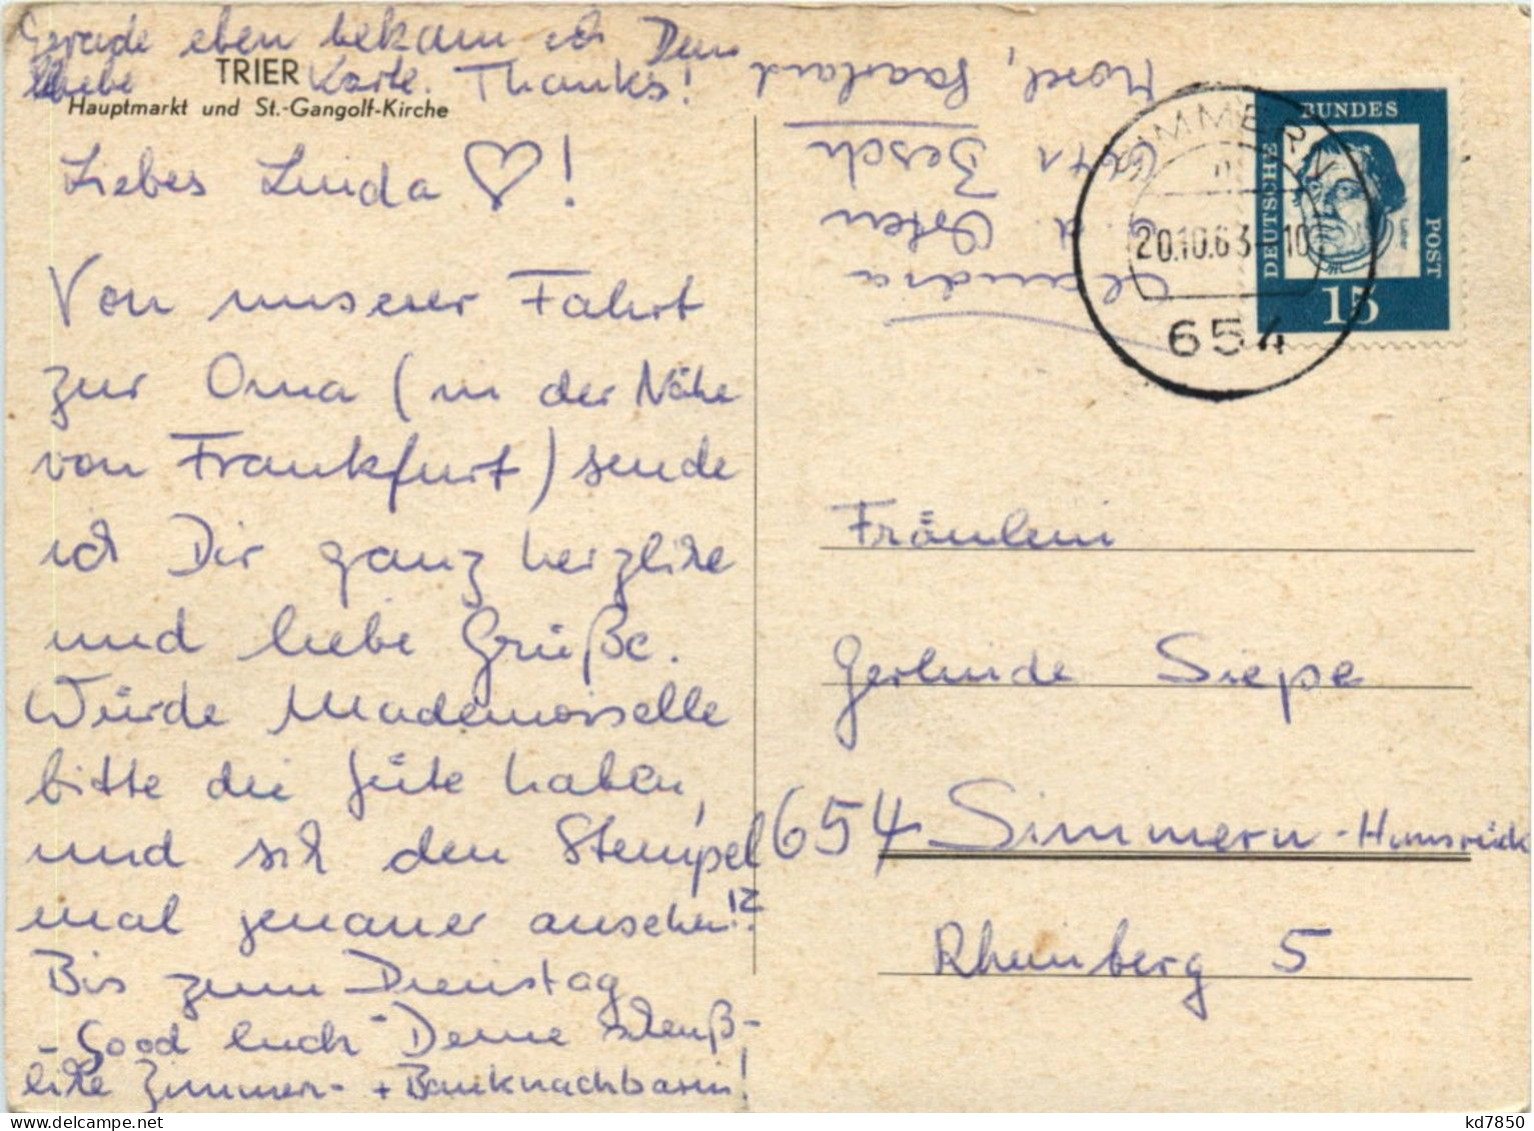 Gerade eben bekam ich Deine
liebe Karte. Thanks!
TRIER
Hauptmarkt und St.-Gangolf-Kirche
Liebes Linda ♡!
Von unserer Fahrt
zur Oma (in der Nähe
von Frankfurt) sende
ich Dir ganz herzliche
und liebe Grüße.
Würde Mademoiselle
bitte die Güte haben,
und sich den Stempel
mal genauer ansehen!?
Bis zum Dienstag
- Good luck - Deine scheuß-
liche Zimmer- + Banknachbarin!
Claudia
a. d. Osten
6641
Besch
Mosel, Saarland
SIMMERN
20.10.63-10
654
DEUTSCHE
BUNDES
POST
15
Fräulein
Gerlinde Siepe
654 Simmern-Hunsrück
Rheinberg 5
kd7850